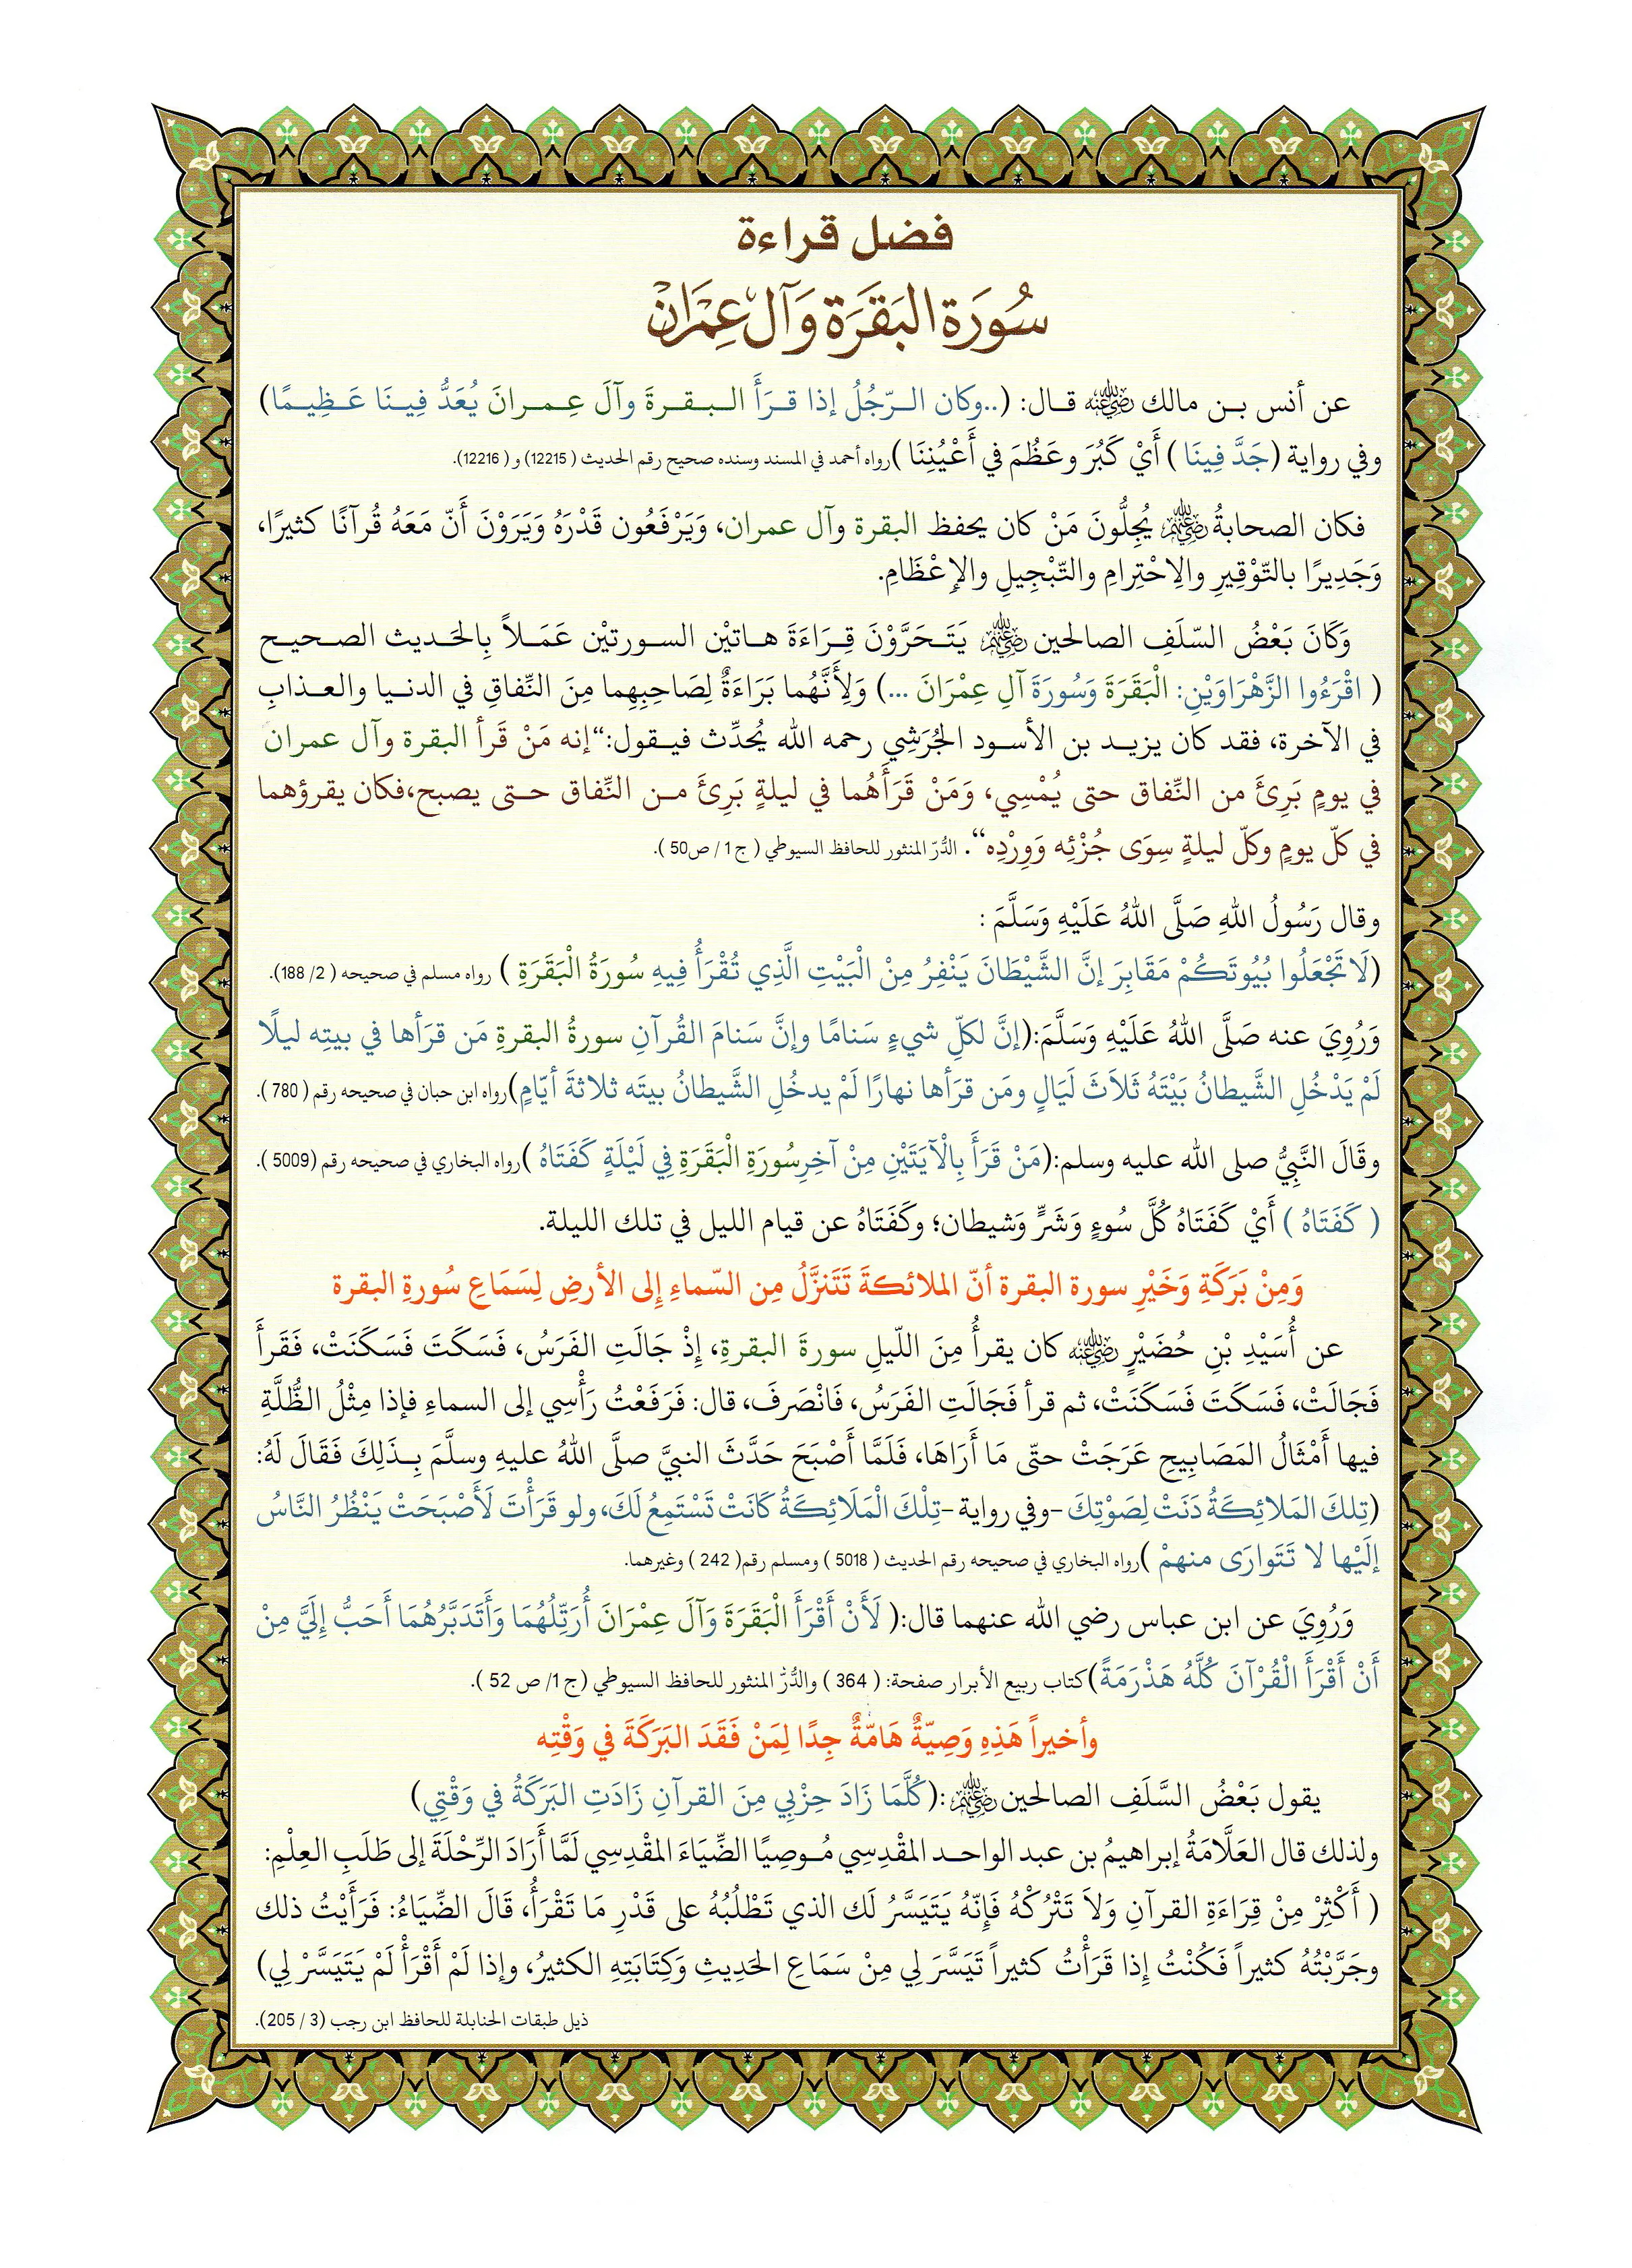 فضل قراءة
سُورَة البَقَرَة وَآل عِمْرَانْ
عن أنس بـن مالك ﵁ قـال: (..وكان الـرّجُلُ إذا قـرَأَ الـبـقـرةَ وآلَ عِـمـرانَ يُعَدُّ فِـيـنَا عَـظِـيـمًا)
وفي رواية (جَدَّ فِينَا ) أَيْ كَبُرَ وعَظُمَ في أَعْيُنِنَا )رواه أحمد في المسند وسنده صحيح رقم الحديث ( 12215) و ( 12216).
فكان الصحابةُ ﵃ يُجِلُّونَ مَنْ كان يحفظ البقرة وآل عمران، وَيَرْفَعُون قَدْرَهُ وَيَرَوْنَ أَنّ مَعَهُ قُرآنًا كثيرًا،
وَجَدِيرًا بالتّوْقِيرِ والِاحْتِرامِ والتّبْجِيلِ والإِعْظَامِ.
وَكَانَ بَعْضُ السّلَفِ الصالحين ﵃ يَتَـحَرَّوْنَ قِـرَاءَةَ هـاتيْن السـورتيْن عَمَـلاً بِالحَـديث الصـحيـح
( اقْرَءُوا الزَّهْرَاوَيْنِ: الْبَقَرَةَ وَسُورَةَ آلِ عِمْرَانَ ...) وَلِأَنَّهُما بَرَاءَةٌ لِصَاحِبِهِما مِنَ النِّفاقِ في الدنـيا والعـذابِ
في الآخرة، فقد كان يزيـد بن الأسـود الجُرَشِي رحمه الله يُحدِّث فيـقول:“إنه مَنْ قَرأ البقرة وآل عمران
في يومٍ بَرِئَ من النِّفاق حتى يُمْسِي، وَمَنْ قَرَأَهُما في ليلةٍ بَرِئَ مـن النِّفاق حـتى يصبح،فكان يقرؤهما
في كلّ يومٍ وكلّ ليلةٍ سِوَى جُزْئِه وَوِرْدِه“. الدُّرّ المنثور للحافظ السيوطي ( ج 1 / ص50 ).
وقال رَسُولُ اللهِ صَلَّى اللهُ عَلَيْهِ وَسَلَّمَ :
(لَا تَجْعَلُوا بُيُوتَكُمْ مَقَابِرَ إنَّ الشَّيْطَانَ يَنْفِرُ مِنْ الْبَيْتِ الَّذِي تُقْرَأُ فِيهِ سُورَةُ الْبَقَرَةِ ) رواه مسلم في صحيحه ( 2/ 188).
وَرُوِيَ عنه صَلَّى اللهُ عَلَيْهِ وَسَلَّمَ:(إنَّ لكلِّ شيءٍ سَنامًا وإنَّ سَنامَ القُرآنِ سورةُ البقرةِ مَن قرَأها في بيتِه ليلًا
لَمْ يَدْخُلِ الشَّيطانُ بَيْتَهُ ثَلاَثَ لَيَالٍ ومَن قرَأها نهارًا لَمْ يدخُلِ الشَّيطانُ بيتَه ثلاثةَ أيّامٍ)رواه ابن حبان في صحيحه رقم ( 780 ).
وقَالَ النَّبِيُّ صلى الله عليه وسلم:(مَنْ قَرَأَ بِالْآيَتَيْنِ مِنْ آخِرِسُورَةِ الْبَقَرَةِ فِي لَيْلَةٍ كَفَتَاهُ )رواه البخاري في صحيحه رقم (5009 ).
( كَفَتَاهُ ) أَيْ كَفَتَاهُ كُلَّ سُوءٍ وَشَرٍّ وَشيطان؛ وكَفَتَاهُ عن قيام الليل في تلك الليلة.
وَمِنْ بَرَكَةِ وَخَيْرِ سورة البقرة أنّ الملائكةَ تَتَنزَّلُ مِن السّماءِ إِلى الأرضِ لِسَمَاعِ سُورةِ البقرة
عن أُسَيْدِ بْنِ حُضَيْرٍ ﵁ كان يقرأُ مِنَ اللّيلِ سورةَ البقرةِ، إِذْ جَالَتِ الفَرَسُ، فَسَكَتَ فَسَكَنَتْ، فَقَرأَ
فَجَالَتْ، فَسَكَتَ فَسَكَنَتْ، ثم قرأ فَجَالَتِ الفَرَسُ، فَانْصَرفَ، قال: فَرَفَعْتُ رَأْسِي إلى السماءِ فإذا مِثْلُ الظُّلَّةِ
فيها أَمْثَالُ المَصَابِيحِ عَرَجَتْ حتّى مَا أَرَاهَا، فَلَمَّا أَصْبَحَ حَدَّثَ النبيَّ صلَّى اللهُ عليهِ وسلَّمَ بِـذَلِكَ فَقَالَ لَهُ:
(تِلكَ المَلائِكَةُ دَنَتْ لِصَوْتِكَ -وفي رواية -تِلْكَ الْمَلَائِكَةُ كَانَتْ تَسْتَمِعُ لَكَ، ولو قَرَأْتَ لَأَصْبَحَتْ يَنْظُرُ النَّاسُ
إلَيْها لا تَتَوارَى منهمْ )رواه البخاري في صحيحه رقم الحديث ( 5018 ) ومسلم رقم( 242 ) وغيرهما.
وَرُوِيَ عن ابن عباس رضي الله عنهما قال:( لَأَنْ أَقْرَأَ الْبَقَرَةَ وَآلَ عِمْرَانَ أُرَتِّلُهُمَا وَأَتَدَبَّرُهُمَا أَحَبُّ إِلَيَّ مِنْ
أَنْ أَقْرَأَ الْقُرْآنَ كُلَّهُ هَذْرَمَةً)كتاب ربيع الأبرار صفحة: ( 364 ) والدُّرُّ المنثور للحافظ السيوطي (ج 1/ ص 52 ).
وأخيراً هَذِهِ وَصِيّةٌ هَامّةٌ جِدًا لِمَنْ فَقَدَ البَرَكَةَ في وَقْتِه
يقول بَعْضُ السَّلَفِ الصالحين ﵃:(كُلَّمَا زَادَ حِزْبِي مِنَ القرآنِ زَادَتِ البَرَكَةُ في وَقْتِي)
ولذلك قال العَلَّامَةُ إبراهيمُ بن عبد الواحـد المقْدِسِي مُـوصِيًا الضِّيَاءَ المقْدِسِي لَمَّا أَرَادَ الرِّحْلَةَ إلى طَلَبِ العِلْمِ:
( أَكْثِرْ مِنْ قِرَاءَةِ القرآنِ وَلاَ تَتْرُكْهُ فَإِنّهُ يَتَيَسَّرُ لَك الذي تَطْلُبُهُ على قَدْرِ مَا تَقْرَأُ، قَالَ الضِّيَاءُ: فَرَأَيْتُ ذلك
وجَرَّبْتُهُ كثيراً فَكُنْتُ إِذا قَرَأْتُ كثيراً تَيَسَّرَ لي مِنْ سَمَاعِ الحَدِيثِ وَكِتَابَتِهِ الكثيرُ، وإذا لَمْ أَقْرَأْ لَمْ يَتَيَسَّرْ لِي)
ذيل طبقات الحنابلة للحافظ ابن رجب (3 / 205).